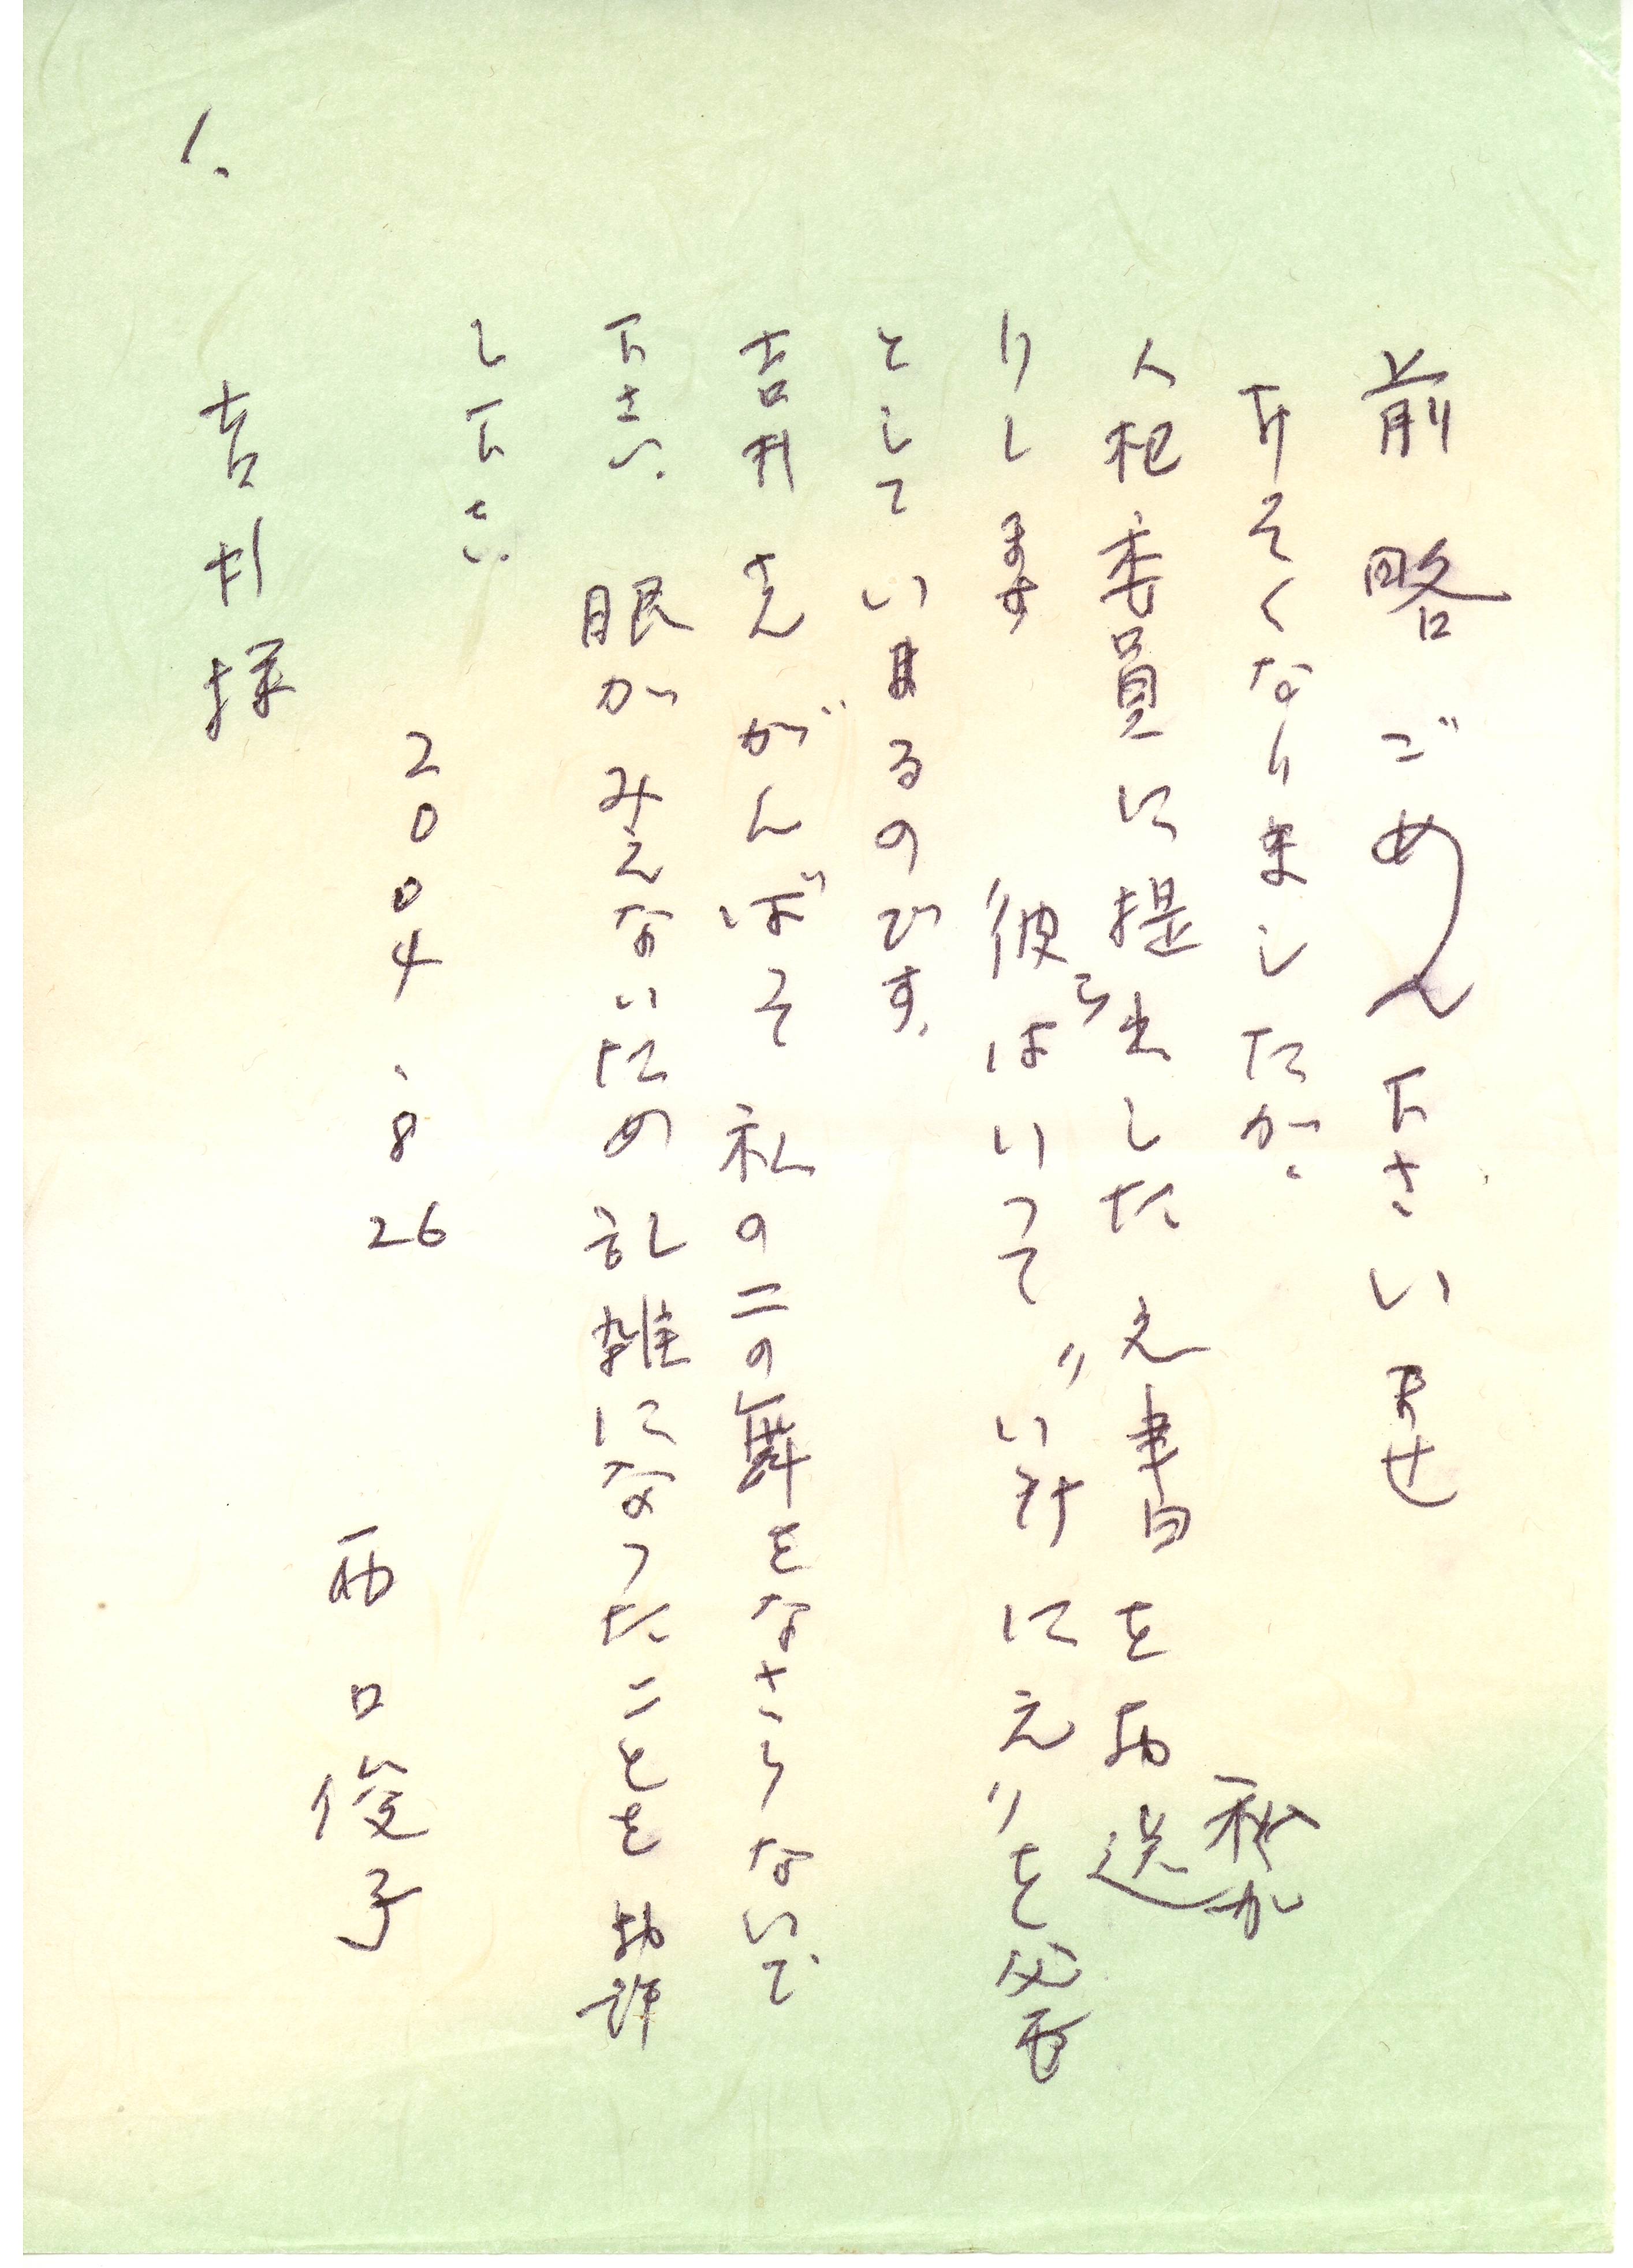 前略ごめん下さいませ
おそくなりましたが、私が
人权委員に提出した文書をお送
りします 〃彼らはいって〃いけにえ〃を必要
としているのです。
吉村さんがんばって 私の二の舞をなさらないで
下さい。眼がみえないため乱雑になったことをお許
し下さい。
2004、8 26
西口俊子
吉村様
1.